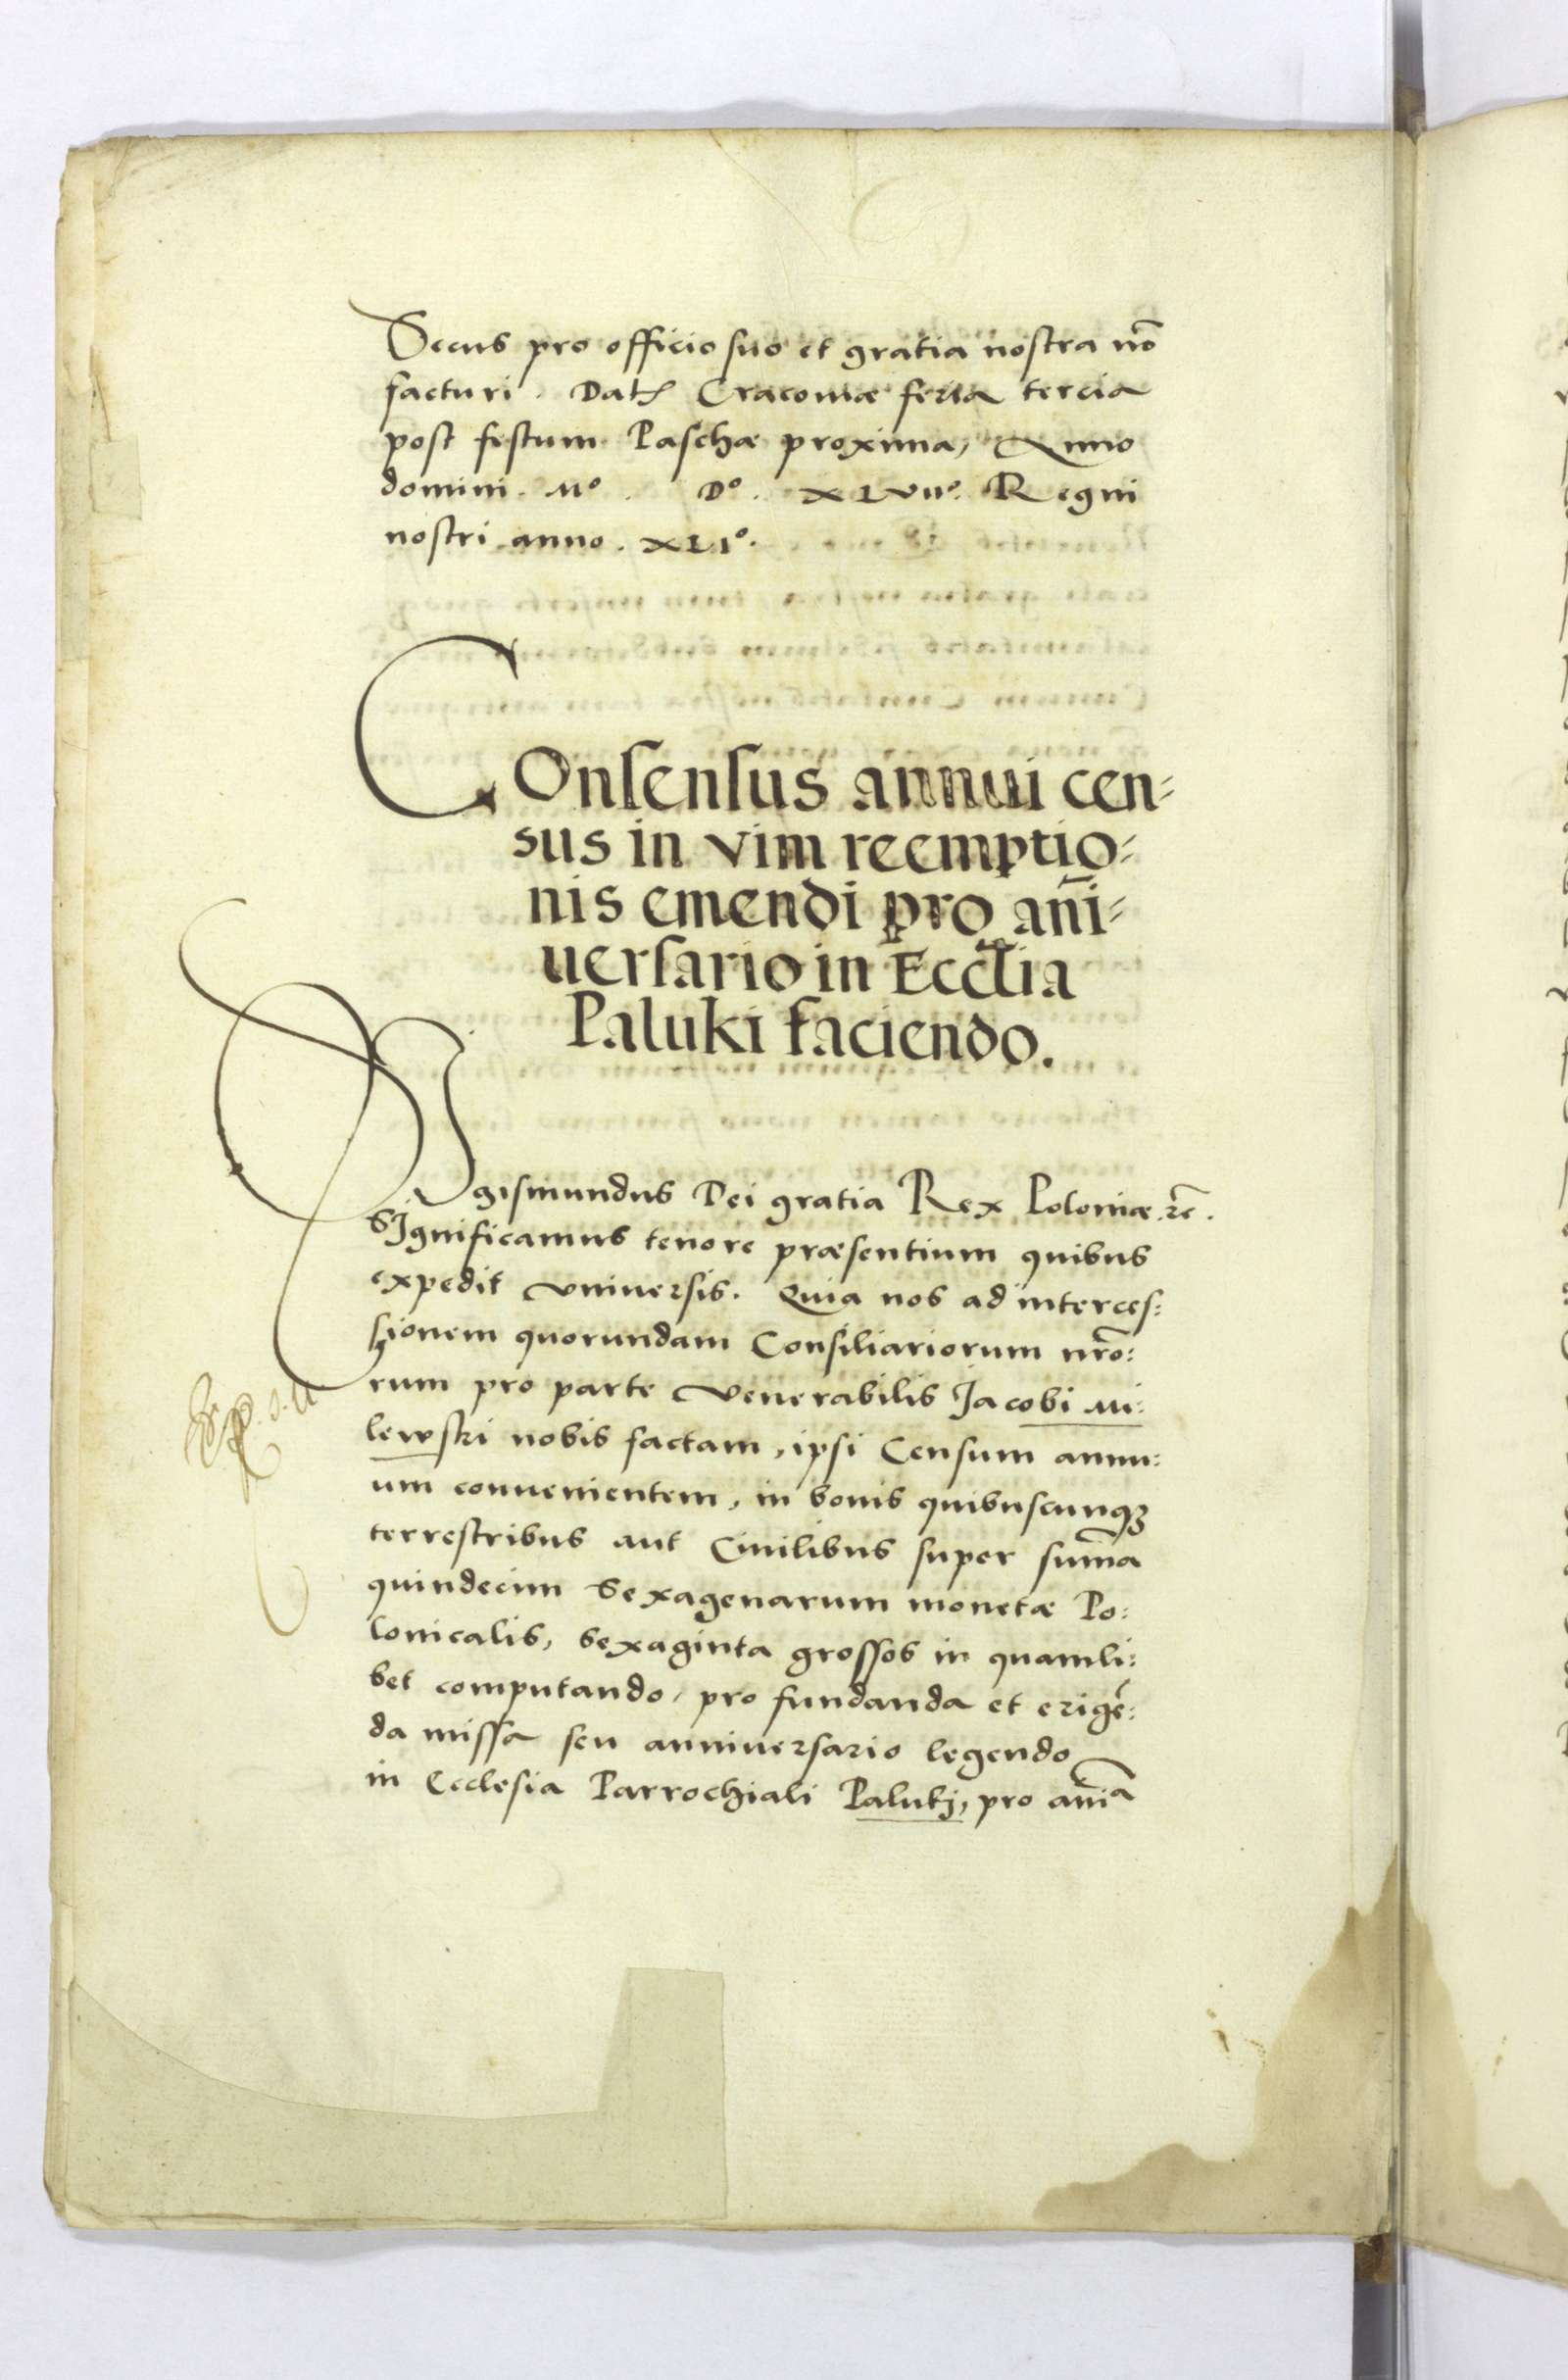 Secus pro officio suo et gratia nostra nō
facturi. Datū Cracouiæ feria tercia
post festum Paschæ proxima, Anno
domini. Mº. Dº. XLVIIº. Regni
nostri anno. XLIº.
COnsensus annui cen=
sus in vim reemptio=
nis emendi pro añi=
uersario in Eccl̄ia
Paluki faciendo.
SIgismundus Dei gratia Rex Poloniæ. rc̄.
SIgnificamus tenore præsentium quibus
expedit vniuersis. Quia nos ad interces=
sionem quorundam Consiliariorum nrō=
rum pro parte venerabilis Jacobi Mi=
lewski nobis factam, ipsi Censum annu=
um conuenientem, in bonis quibuscunqꝫ
terrestribus aut Ciuilibus super sum̄a
quindecim Sexagenarum monetæ Po=
lonicalis, sexaginta grossos in quamli=
bet computando, pro fundanda et erigē=
da missa seu anniuersario legendo
in Ecclesia Parrochiali Paluki, pro anīa